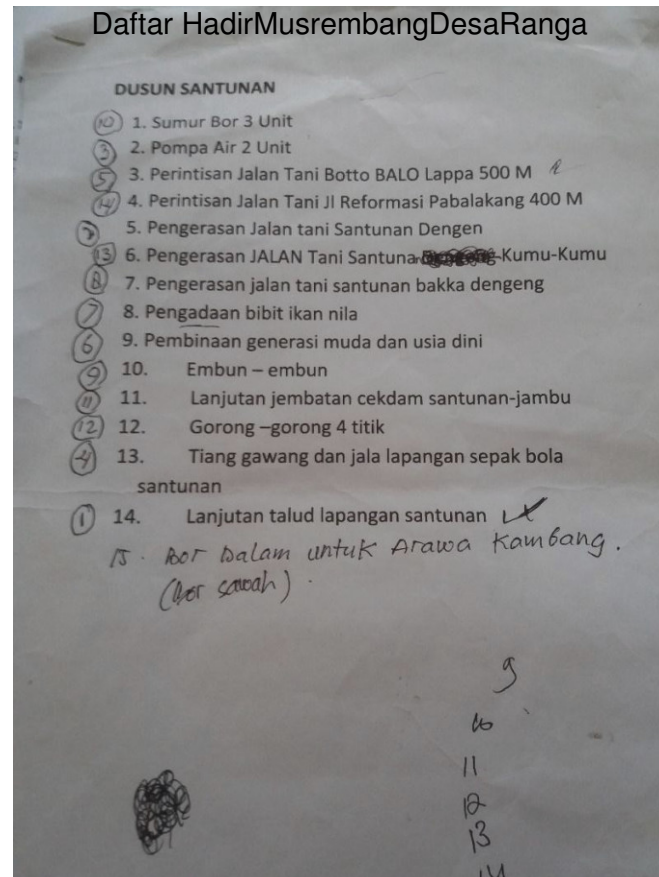 Daftar HadirMusrembangDesaRanga
DUSUN SANTUNAN
10 1. Sumur Bor 3 Unit
3 2. Pompa Air 2 Unit
5 3. Perintisan Jalan Tani Botto BALO Lappa 500 M
14 4. Perintisan Jalan Tani Jl Reformasi Pabalakang 400 M
5. Pengerasan Jalan tani Santunan Dengen
13 6. Pengerasan JALAN Tani Santuna Kumu-Kumu
8 7. Pengerasan jalan tani santunan bakka dengeng
7 8. Pengadaan bibit ikan nila
6 9. Pembinaan generasi muda dan usia dini
9 10. Embun – embun
11 11. Lanjutan jembatan cekdam santunan-jambu
12 12. Gorong –gorong 4 titik
4 13. Tiang gawang dan jala lapangan sepak bola
santunan
1 14. Lanjutan talud lapangan santunan
15. Bor Dalam untuk Arawa Kambang.
(Bor sawah).
9
10
11
12
13
14